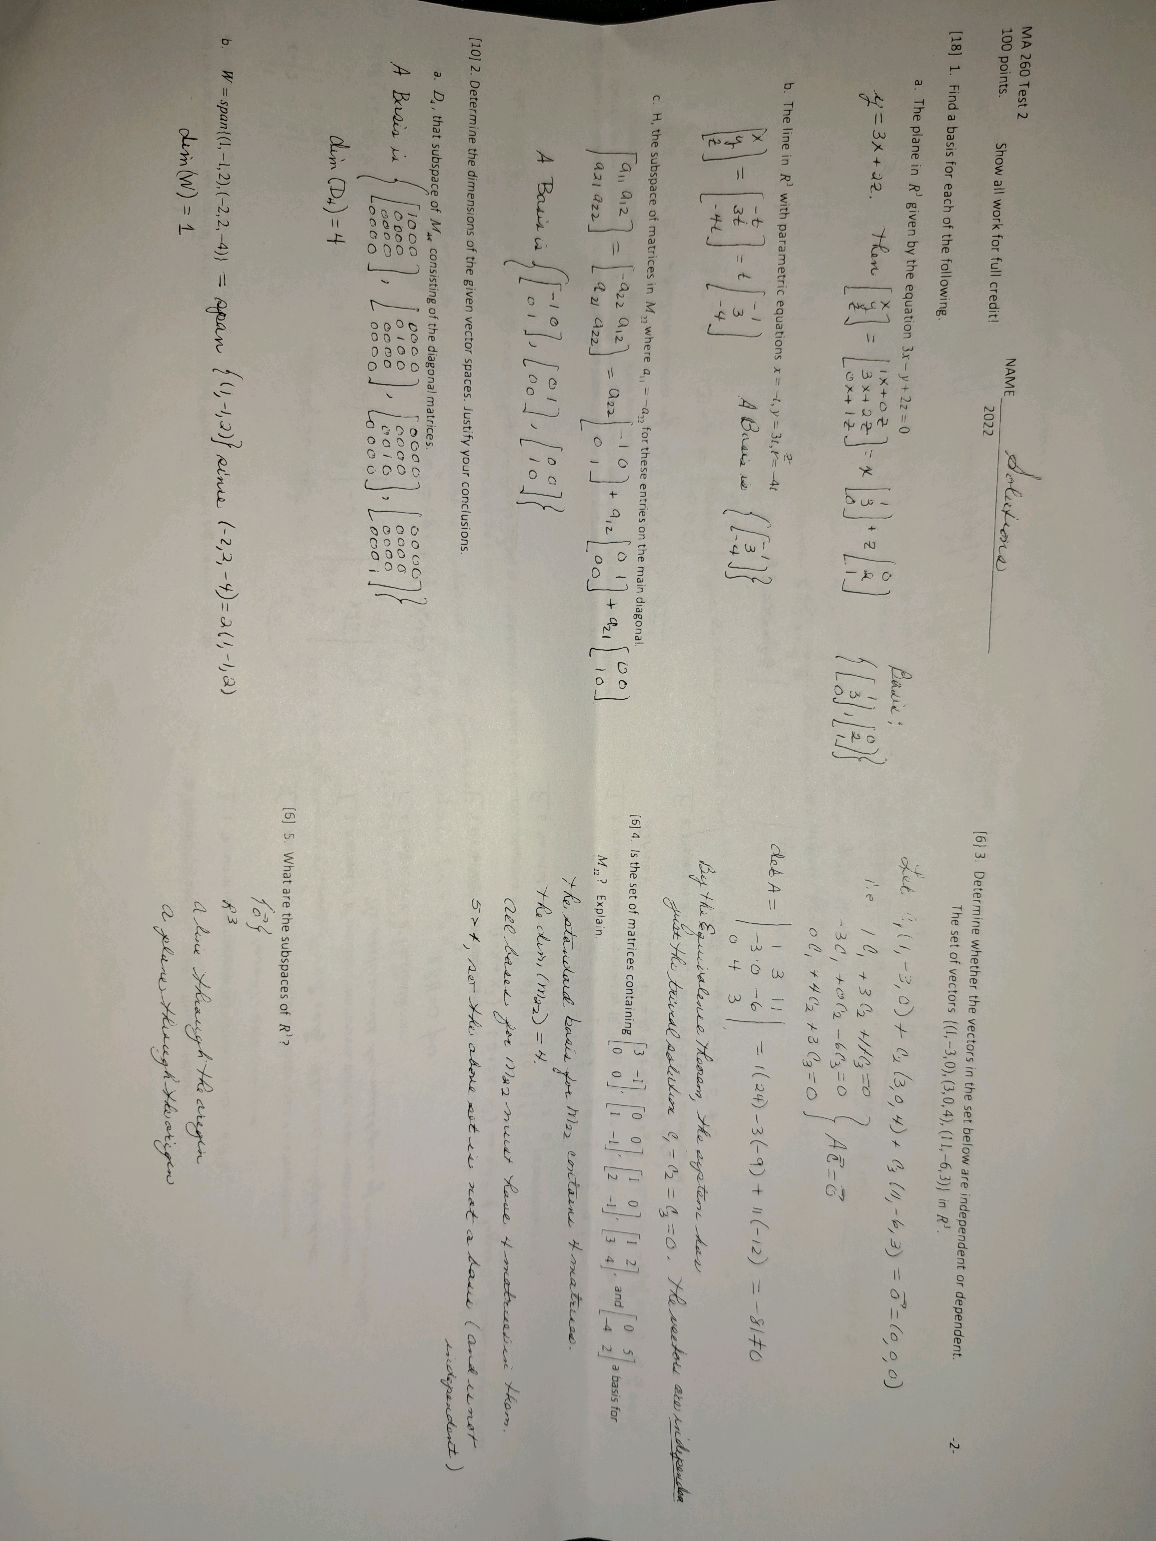 MA 260 Test 2
100 points. Show all work for full credit!
NAME Solutions
2022
[18] 1. Find a basis for each of the following.
a. The plane in R³ given by the equation 3x − y + 2z = 0
y = 3x + 2z. Then [x y z] = [1x+0z 3x+2z 0x+1z] = x [1 3 0] + z [0 2 1]
Basis:
{[1 3 0], [0 2 1]}
b. The line in R³ with parametric equations x = −t, y = 3t, z = −4t
[x y z] = [-t 3t -4t] = t [-1 3 -4] A Basis is {[-1 3 -4]}
c. H, the subspace of matrices in M₂₂ where a₁₁ = −a₂₂ for these entries on the main diagonal.
[a₁₁ a₁₂ a₂₁ a₂₂] = [-a₂₂ a₁₂ a₂₁ a₂₂] = a₂₂ [-1 0 0 1] + a₁₂ [0 1 0 0] + a₂₁ [0 0 1 0]
A Basis is {[-1 0 0 1], [0 1 0 0], [0 0 1 0]}
[10] 2. Determine the dimensions of the given vector spaces. Justify your conclusions.
a. D₄, that subspace of M₄₄ consisting of the diagonal matrices.
A Basis is {[1000 0000 0000 0000], [0000 0100 0000 0000], [0000 0000 0010 0000], [0000 0000 0000 0001]}
dim (D₄) = 4
b. W = span{(1,−1,2),(−2,2,−4)} = span {(1,-1,2)} since (-2,2,-4) = 2(1,-1,2)
dim(W) = 1
-2-
[6] 3. Determine whether the vectors in the set below are independent or dependent.
The set of vectors {(1,−3,0),(3,0,4),(11,−6,3)} in R³.
Let C₁(1,-3,0) + C₂(3,0,4) + C₃(11,-6,3) = 0⃗ = (0,0,0)
i.e 1C₁ + 3C₂ + 11C₃ = 0
-3C₁ + 0C₂ - 6C₃ = 0 } AC⃗ = 0⃗
0C₁ + 4C₂ + 3C₃ = 0
det A = | 1 3 11 -3 0 -6 0 4 3 | = 1(24) - 3(-9) + 11(-12) = -81 ≠ 0
By the Equivalence Theorem, the system has
just the trivial solution C₁ = C₂ = C₃ = 0. The vectors are independen
[6] 4. Is the set of matrices containing [3 −1 0 0], [0 0 1 −1], [1 0 2 −1], [1 2 3 4], and [0 5 −4 2] a basis for
M₂₂? Explain.
The standard basis for M22 contains 4 matrices.
The dim (M22) = 4.
All bases for M22 must have 4 matrices in them.
5 > 4, so the above set is not a basis (and is not
independent)
[6] 5. What are the subspaces of R³?
{0⃗}
R3
a line through the origin
a plane through the origin